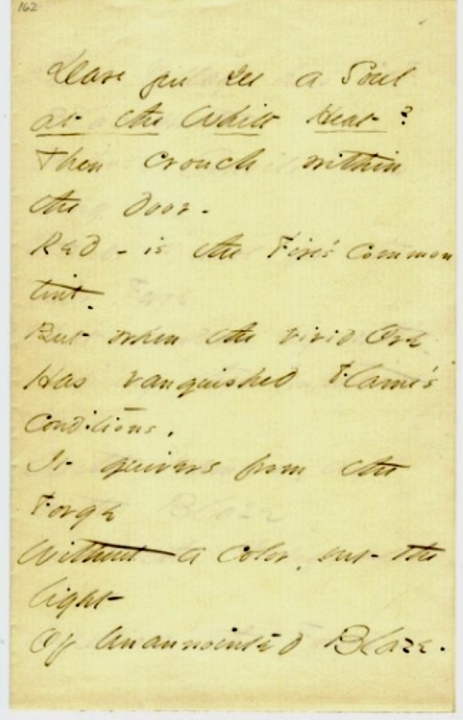 162
Dare you see a Soul
at the White Heat?
Then crouch within
the door -
Red - is the Fire's common
tint -
But when the vivid Ore
Has vanquished Flame's
conditions,
It quivers from the
Forge
Without a color, but the
light
Of unannointed Blaze.